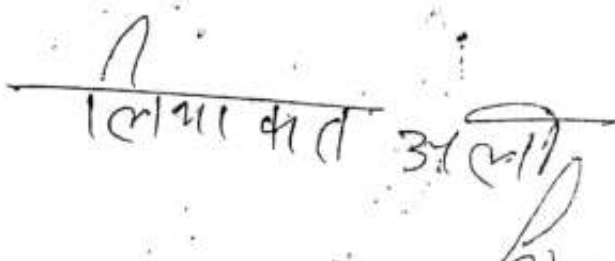 लियाकत अली